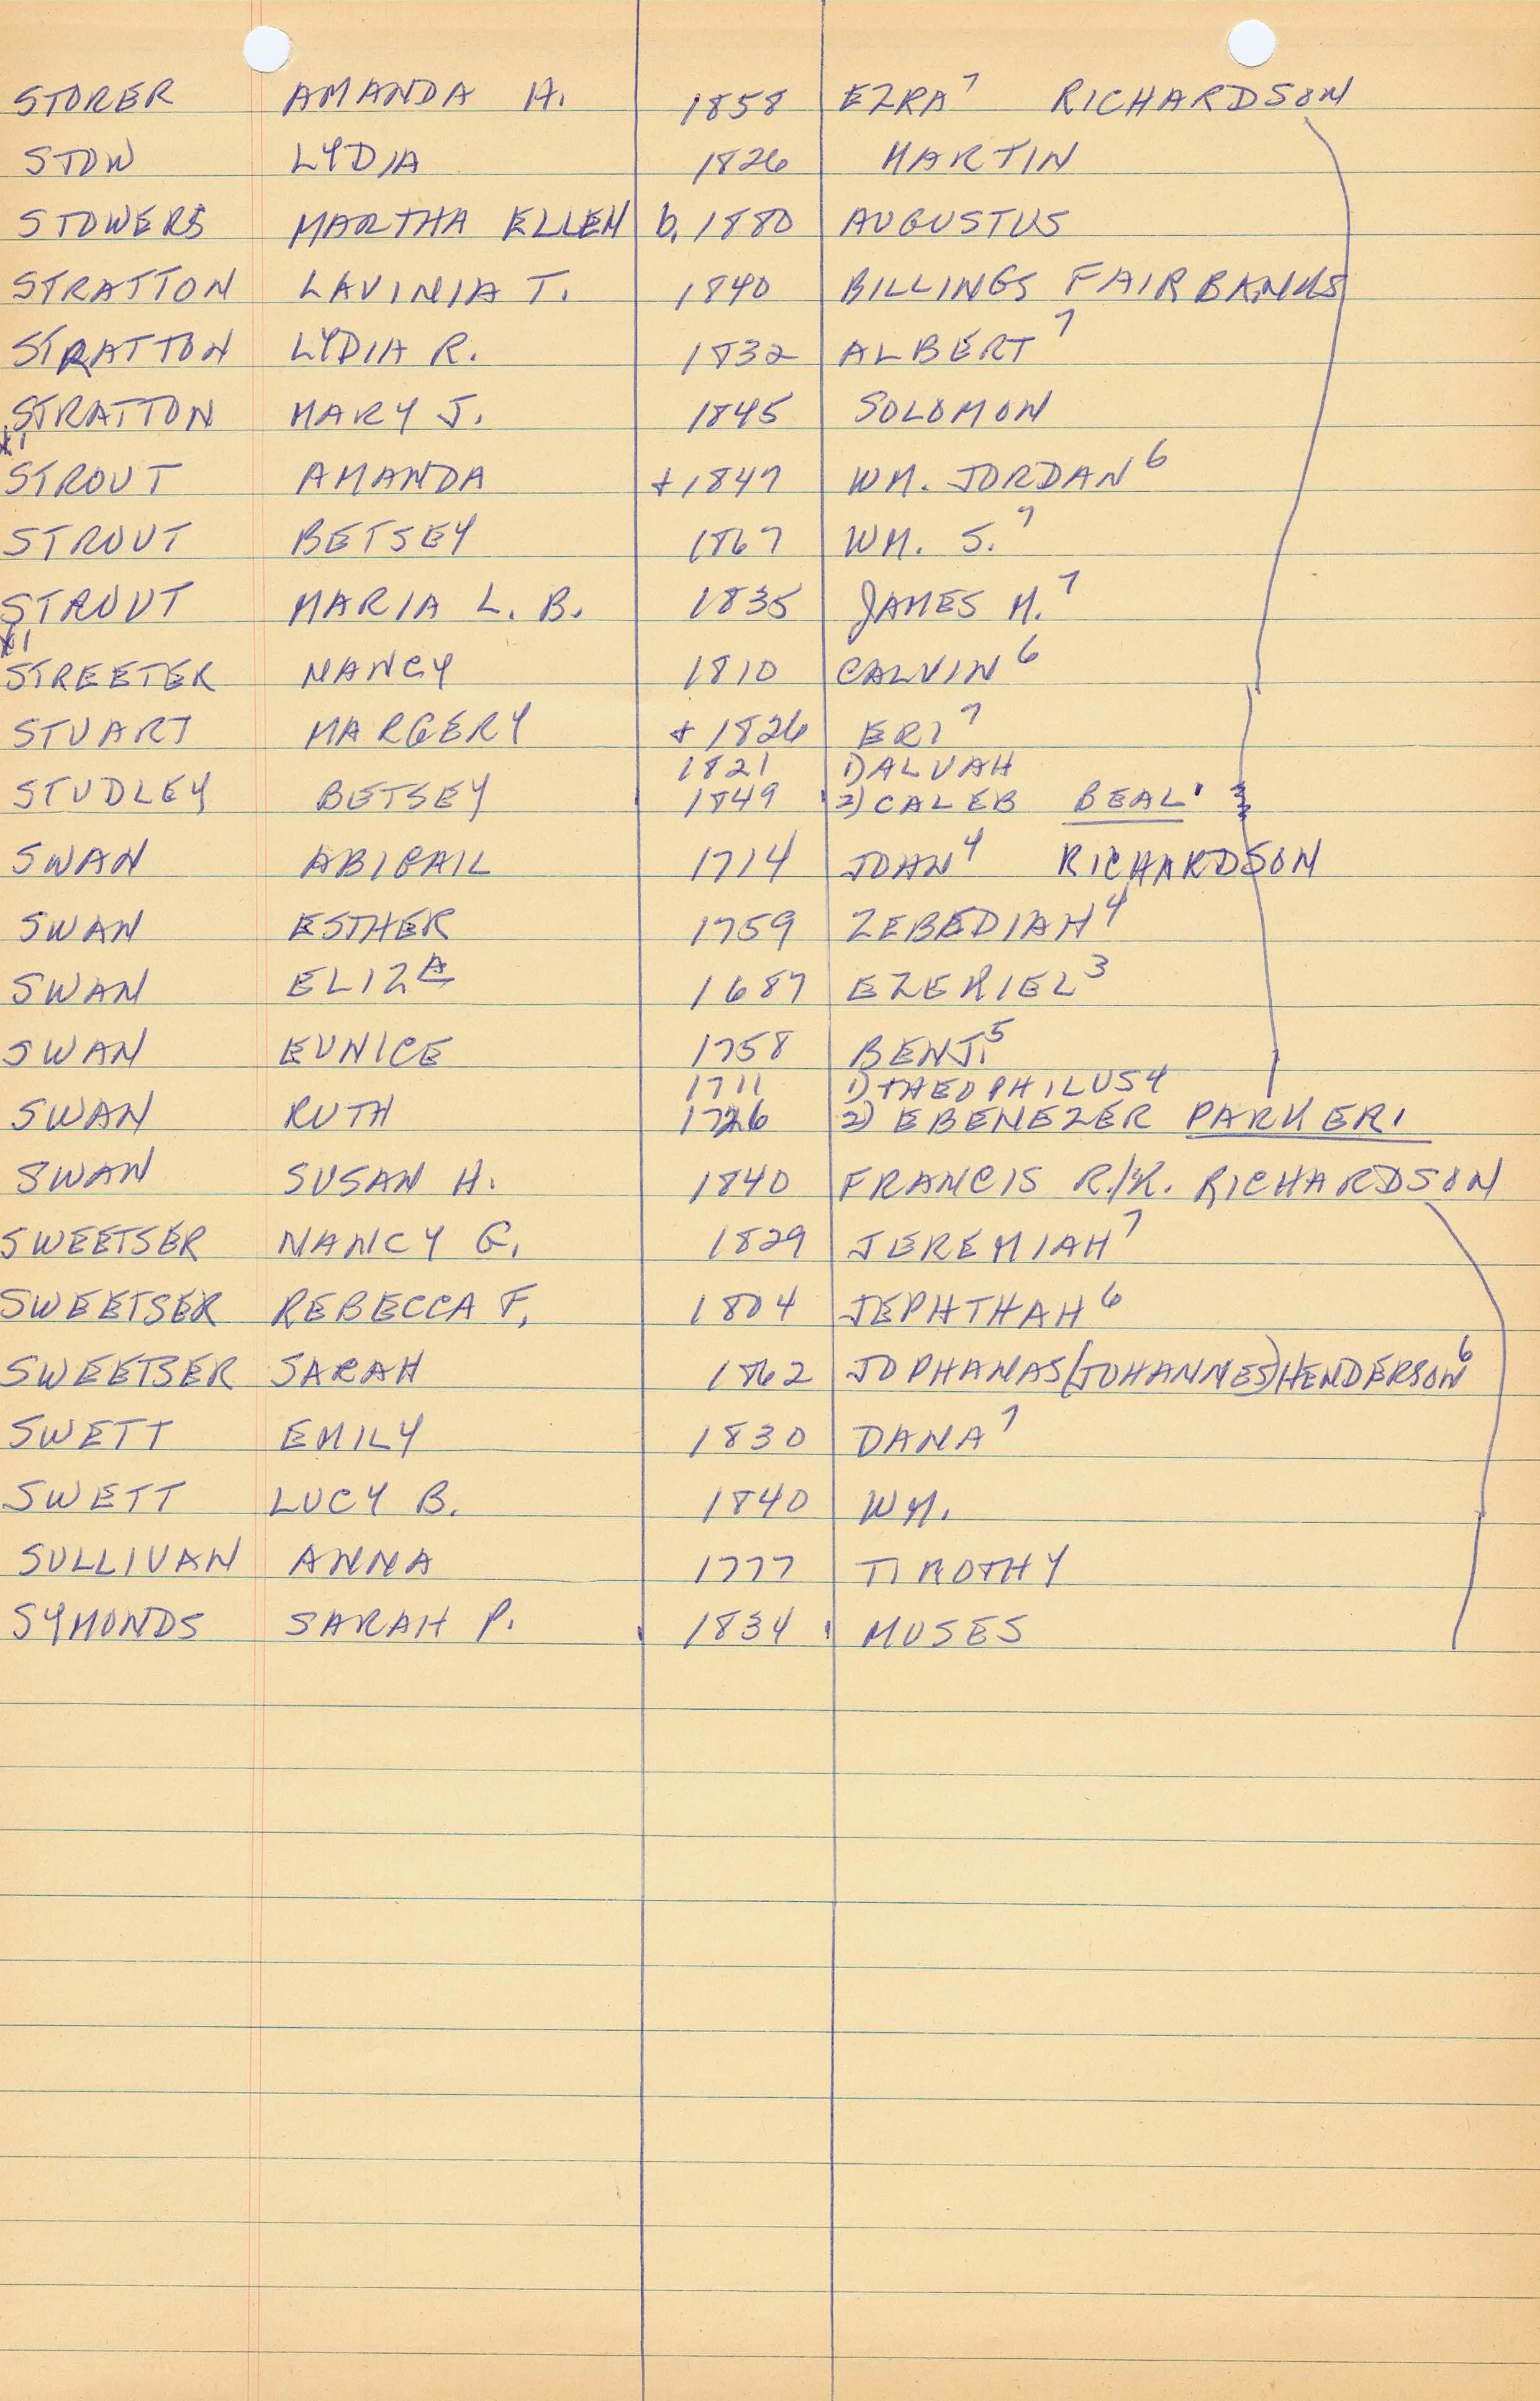 STORER AMANDA A. 1858 EZRA⁷ RICHARDSON
STOW LYDIA 1826 MARTIN
STOWERS MARTHA ELLEN b. 1880 AUGUSTUS
STRATTON LAVINIA T. 1840 BILLINGS FAIRBANKS
STRATTON LYDIA R. 1832 ALBERT⁷
STRATTON MARY J. 1845 SOLOMON
STROUT AMANDA + 1847 WM. JORDAN⁶
STROUT BETSEY 1867 WM. S.⁷
STROUT MARIA L. B. 1835 JAMES M.⁷
STREETER NANCY 1810 CALVIN⁶
STUART MARGERY + 1826 ERI⁷
1821 1) ALVAH
STUDLEY BETSEY 1849 2) CALEB BEAL
SWAN ABIGAIL 1714 JOHN⁴ RICHARDSON
SWAN ESTHER 1759 ZEBEDIAH⁴
SWAN ELIZA 1687 EZEKIEL³
SWAN EUNICE 1758 BENJ.⁵
1711 1) THEOPHILUS⁴
SWAN RUTH 1726 2) EBENEZER PARKER
SWAN SUSAN H. 1840 FRANCIS R./K. RICHARDSON
SWEETSER NANCY G. 1829 JEREMIAH⁷
SWEETSER REBECCA F. 1804 JEPHTHAH⁶
SWEETSER SARAH 1862 JOPHANAS (JOHANNES) HENDERSON⁶
SWETT EMILY 1830 DANA⁷
SWETT LUCY B. 1840 WM.
SULLIVAN ANNA 1777 TIMOTHY
SYMONDS SARAH P. 1834 MOSES